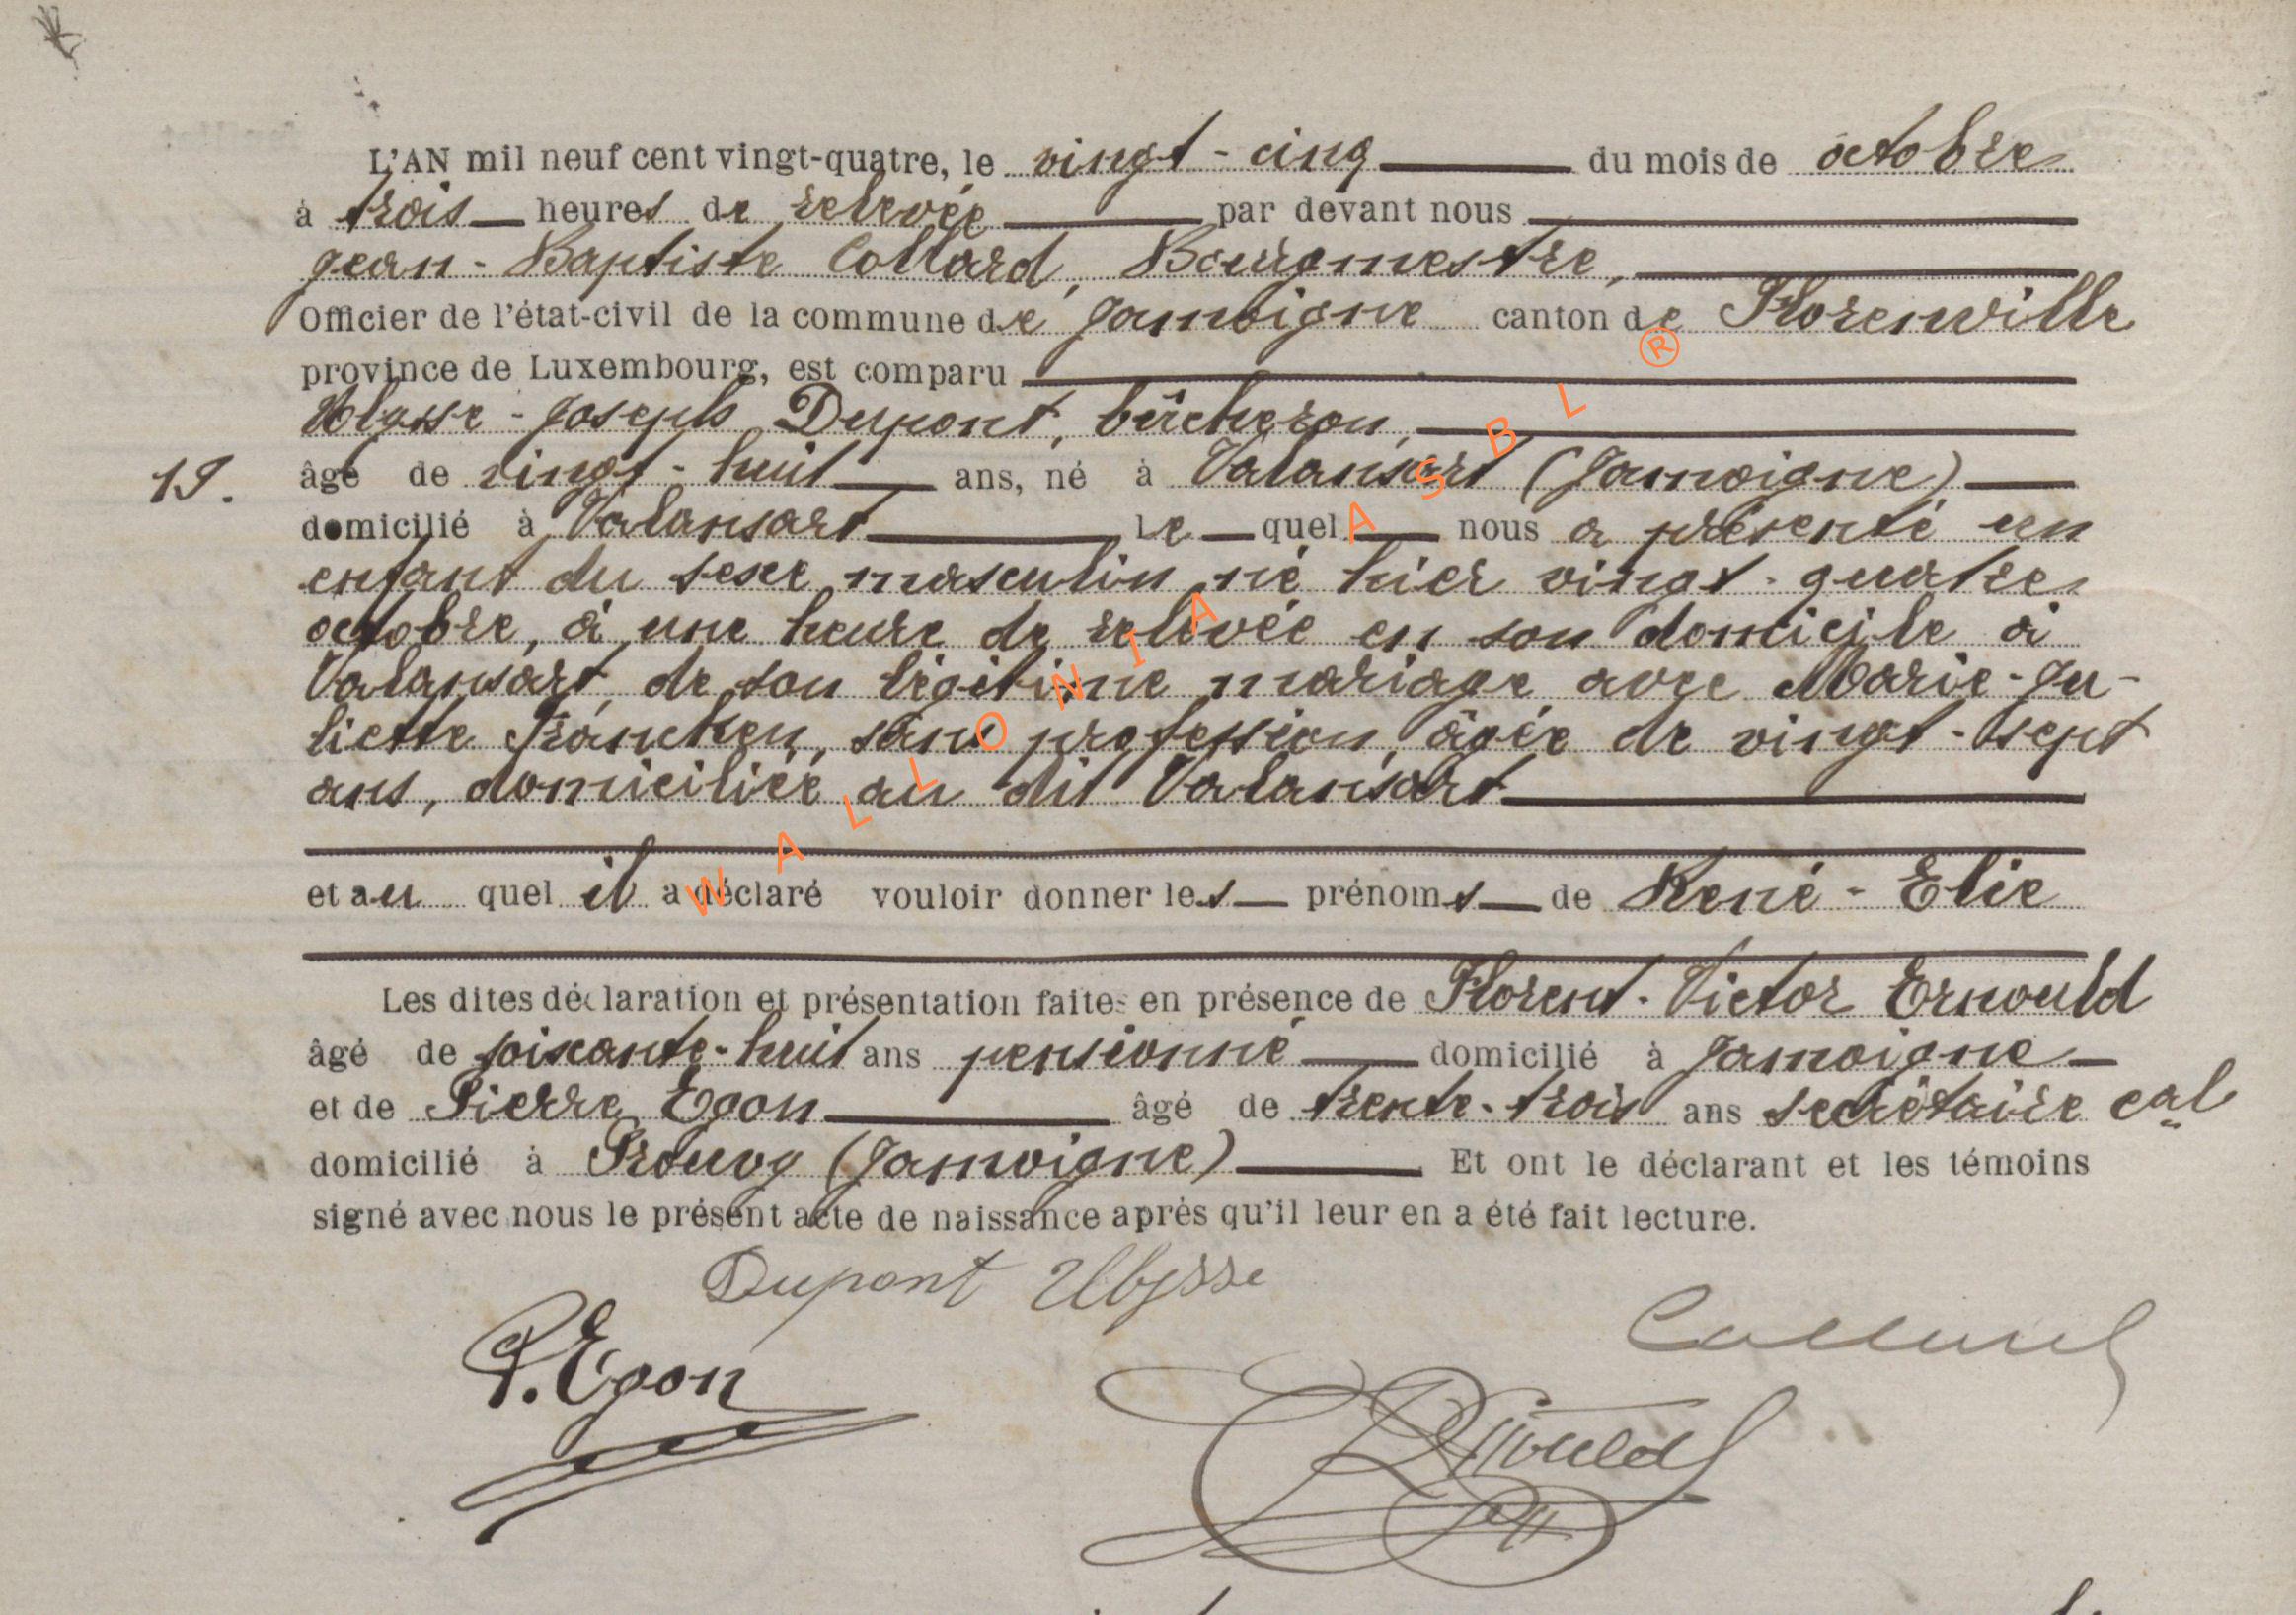 L'AN mil neuf cent vingt-quatre, le vingt-cinq du mois de octobre
à trois heures de relevée par devant nous
Jean-Baptiste Collard, Bourgmestre,
Officier de l'état-civil de la commune de Jamoigne canton de Florenville
province de Luxembourg, est comparu
Ulysse-Joseph Dupont, bûcheron,
19. âgé de vingt-huit ans, né à Valansart (Jamoigne)
domicilié à Valansart Le quel nous a présenté un
enfant du sexe masculin né hier vingt-quatre
octobre, à une heure de relevée en son domicile à
Valansart, de son légitime mariage avec Marie-Ju-
liette Francken, sans profession, âgée de vingt-sept
ans, domiciliée au dit Valansart
et au quel il a déclaré vouloir donner les prénoms de René-Elie
Les dites déclaration et présentation faites en présence de Florent-Victor Ernould
âgé de soixante-huit ans pensionné domicilié à Jamoigne
et de Pierre Egon âgé de trente-trois ans secrétaire cal
domicilié à Prouvy (Jamoigne) Et ont le déclarant et les témoins
signé avec nous le présent acte de naissance après qu'il leur en a été fait lecture.
Dupont Ulysse
P. Egon
Collard
Ernould
WALLONIA ASBL ®